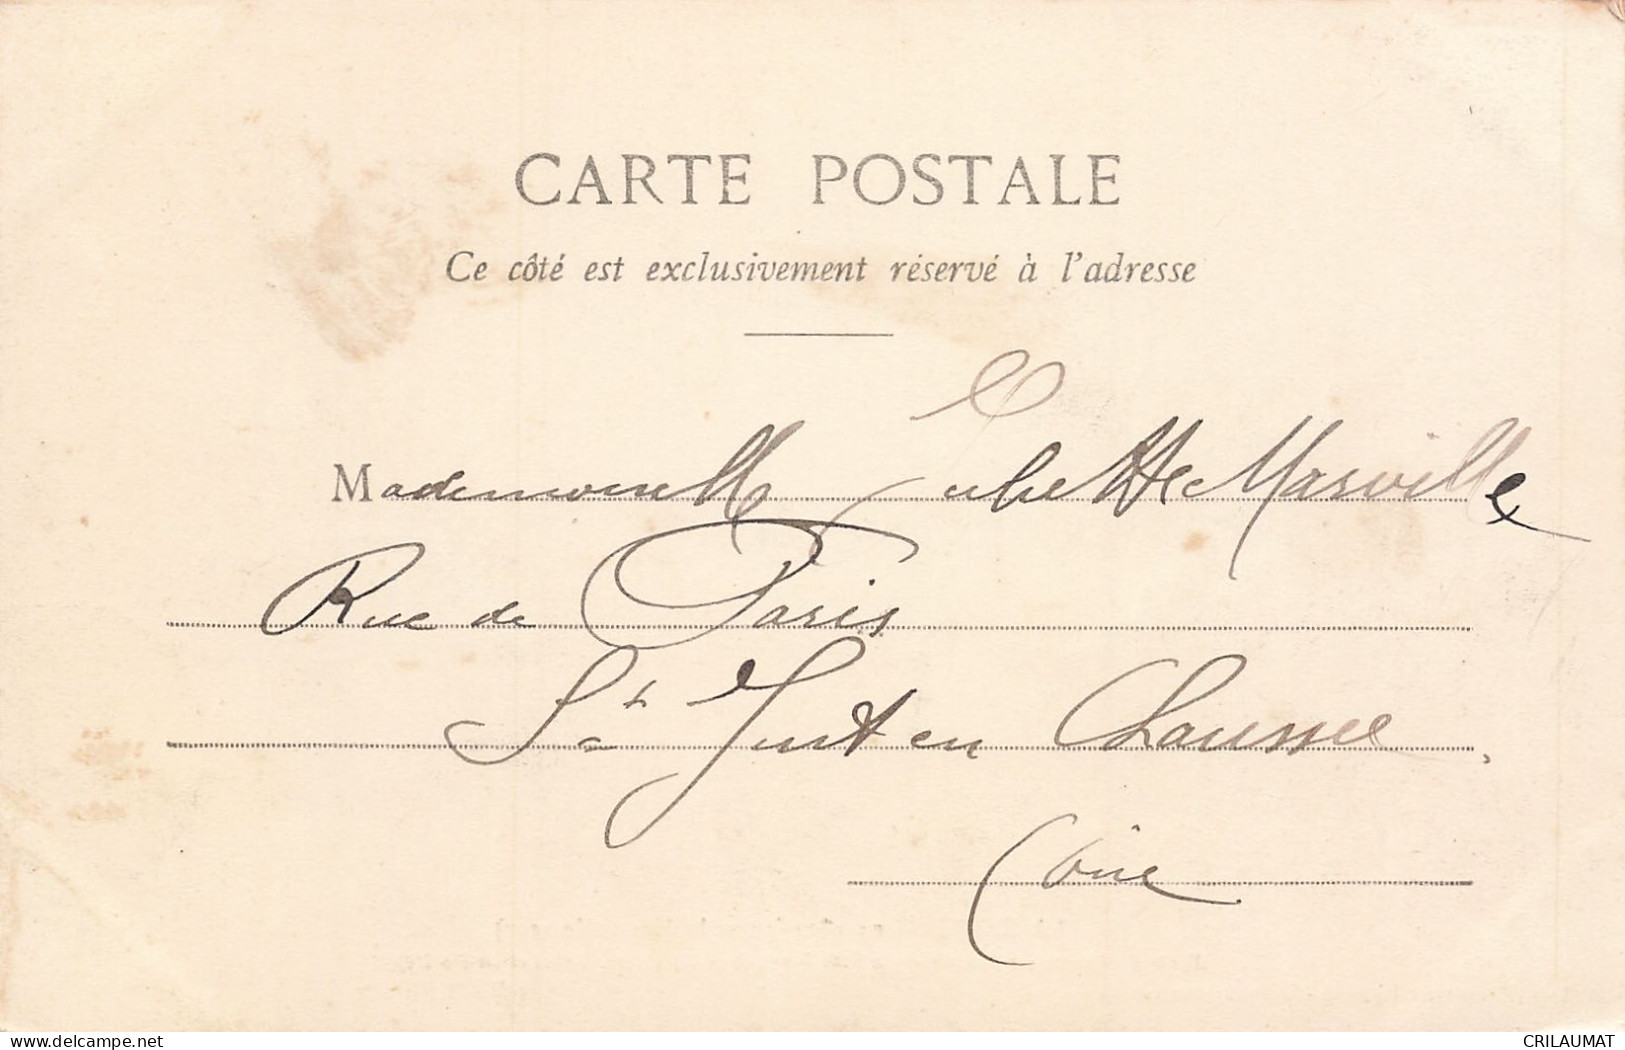 CARTE POSTALE
Ce côté est exclusivement réservé à l'adresse
Mademoiselle Juliette Marville
Rue de Paris
St Just en Chaussee
Oise
delcampe.net
CRILAUMAT